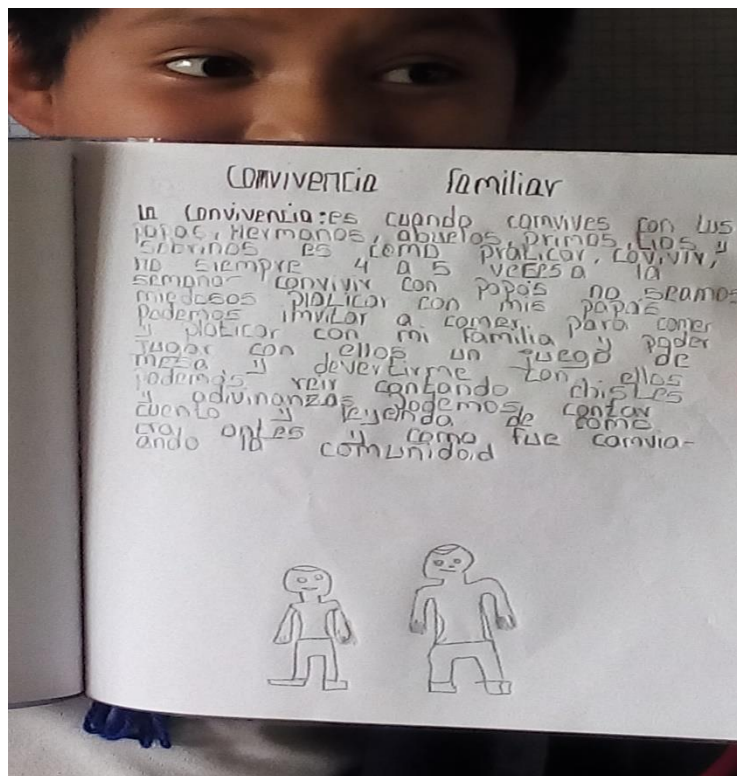 Comvivencia familiar
la Convivencia: es cuando comvives con tus
papas, Hermanos, abuelos, primos, tios y
sobrinos es como praticar, covivir,
no siempre 4 a 5 veses a la
semana convivir con papás no seamos
miedosos platicar con mis papás
Podemos imvitar a comer, para comer
y platicar con mi familia y poder
jugar con ellos un juego de
mesa y devertirme con ellos
podemos reir contando chistes
y adivinanzas podemos contar
cuento y leyenda de como
era antes y como fue camvia-
ando la comunidad